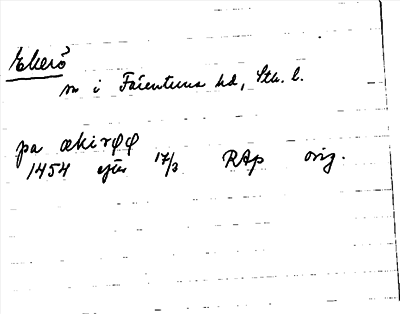 Ekerö
sn i Färentuna hd, Sth. l.
pa ækirøø
1454 efter 17/3 RAp orig.